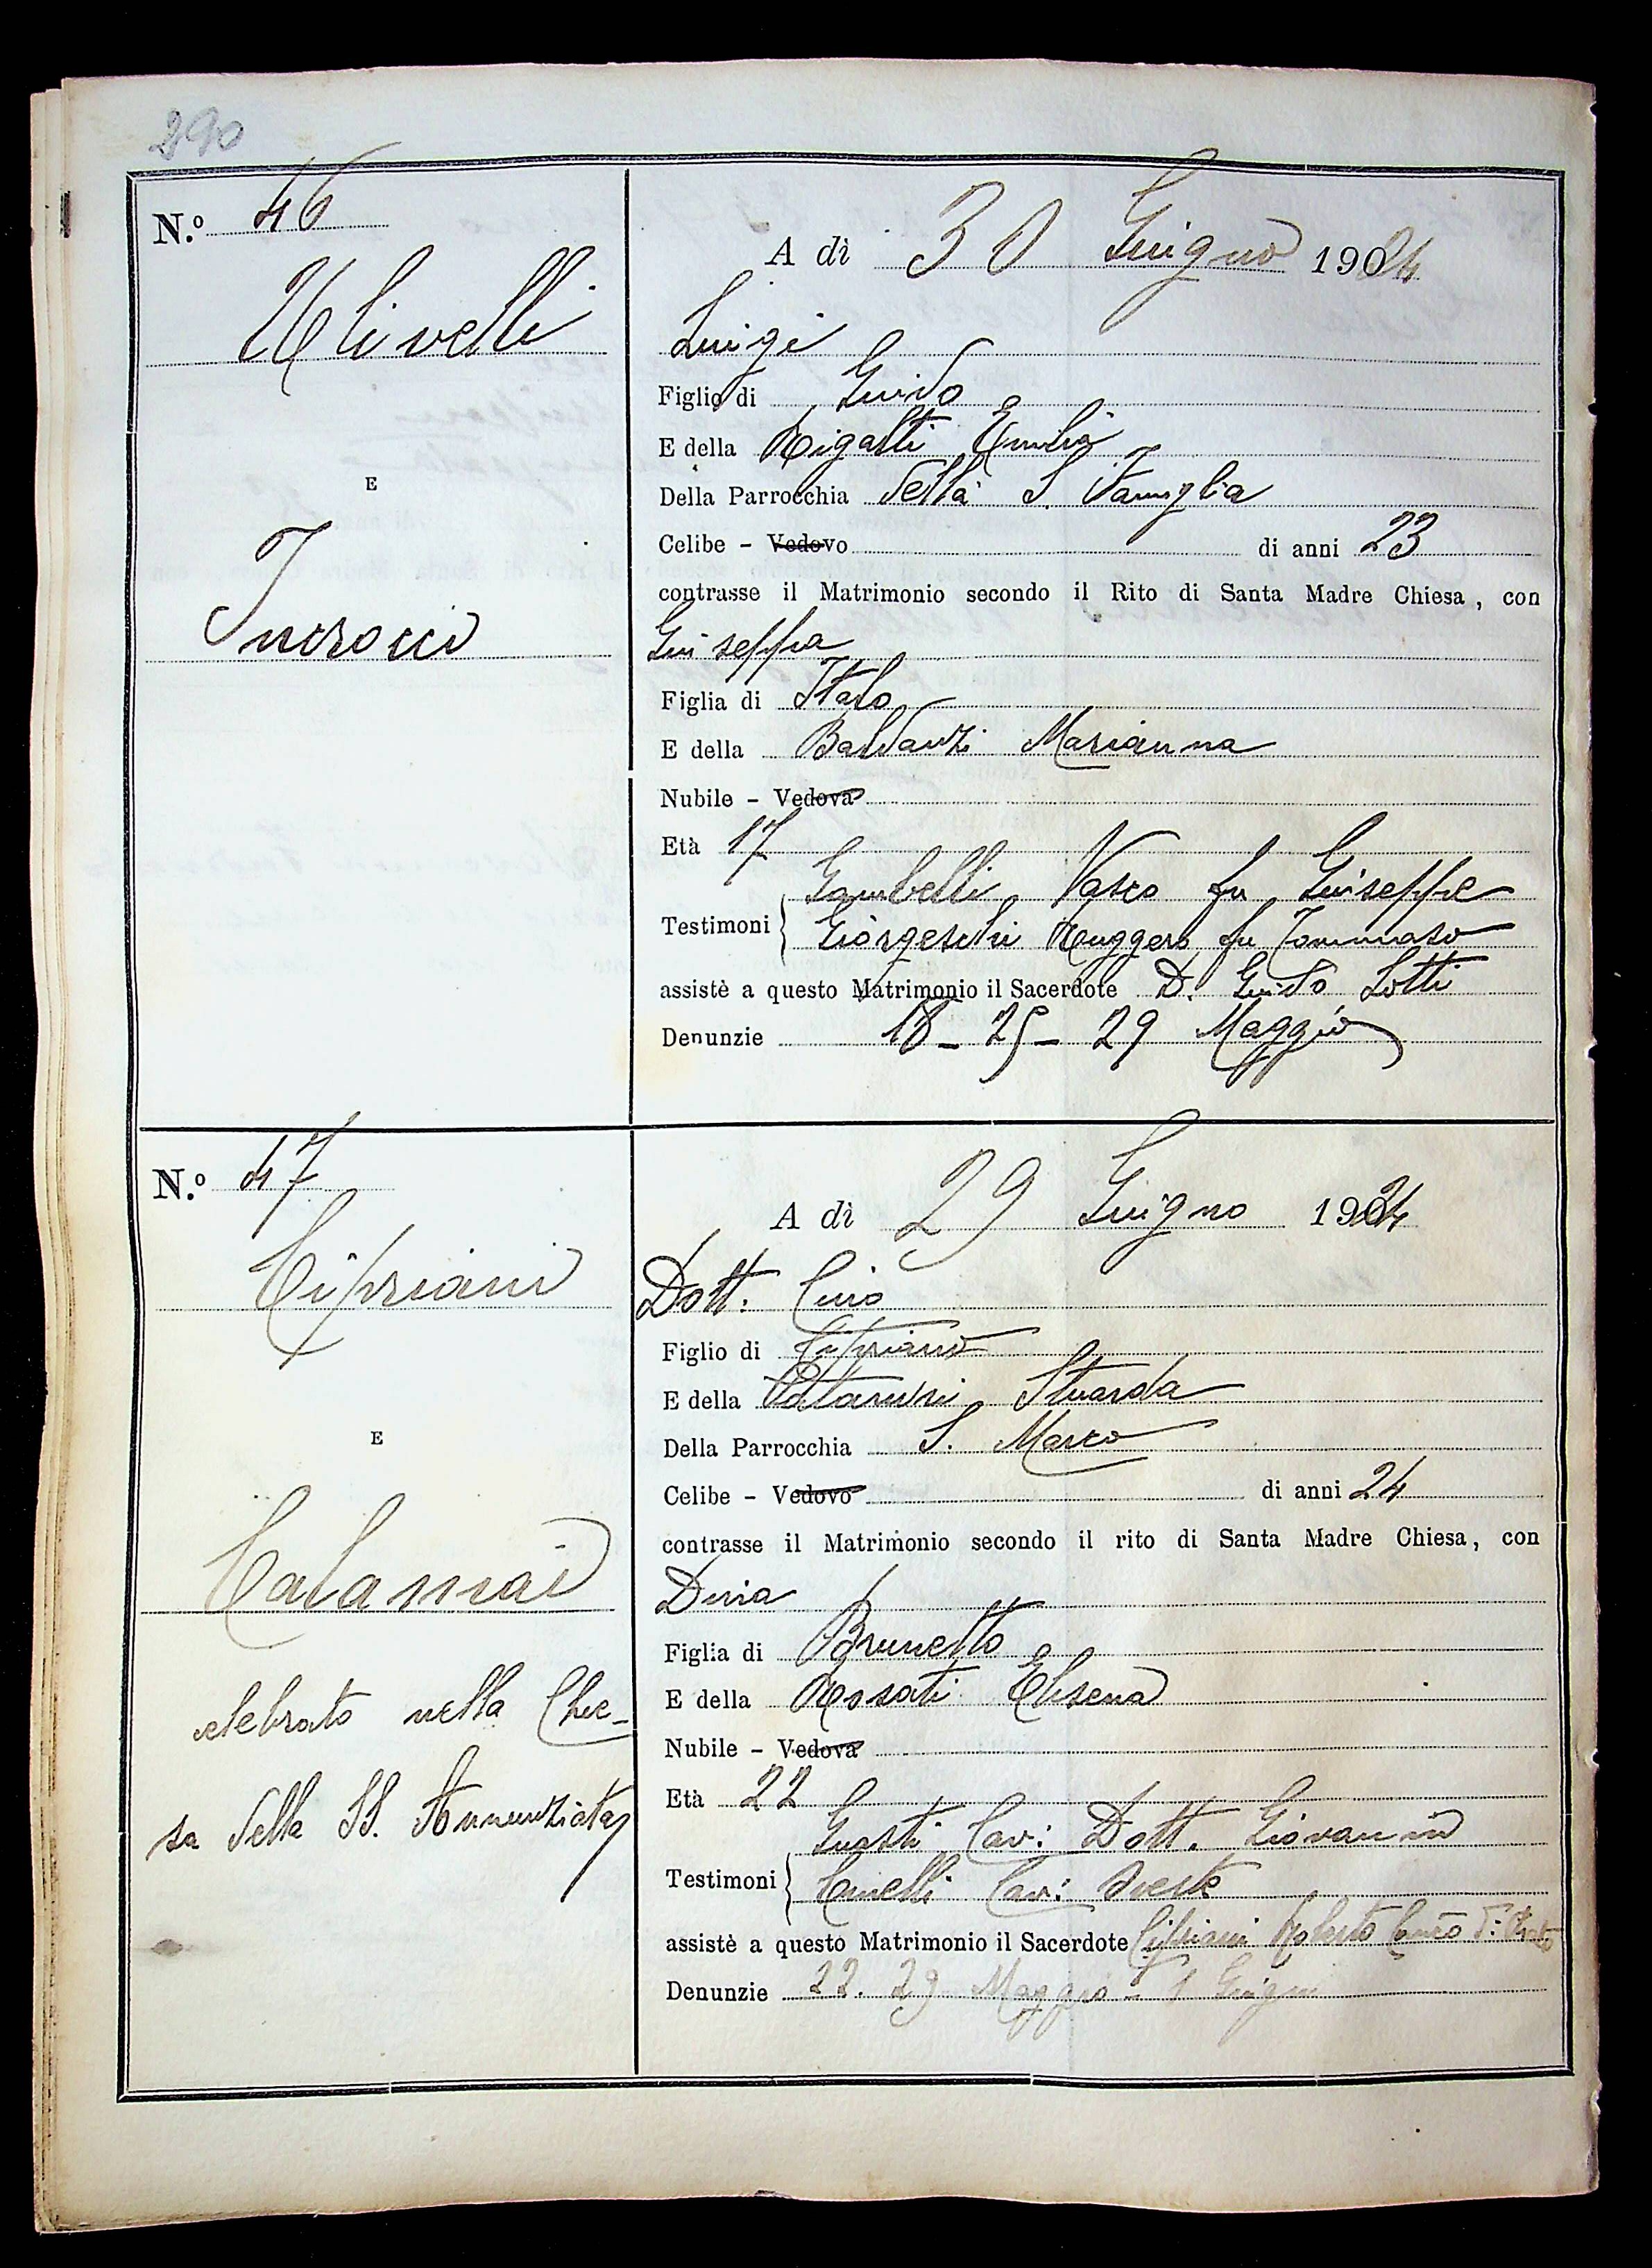 290
N.º 46
Ulivelli
E
Incrocci
A dì 30 Giugno 1924
Luigi
Figlio di Guido
E della Rigatti Emilia
Della Parrocchia della S. Famiglia
Celibe - Vedovo di anni 23
contrasse il Matrimonio secondo il Rito di Santa Madre Chiesa, con
Giuseppa
Figlia di Italo
E della Baldanzi Marianna
Nubile - Vedova
Età 17
Testimoni
Gambelli Vasco fu Giuseppe
Giorgeschi Ruggero fu Tommaso
assistè a questo Matrimonio il Sacerdote D. Guido Lotti
Denunzie 18 - 25 - 29 Maggio
N.º 47
Cipriani
E
Calamai
celebrato nella Chie-
sa della SS. Annunziata
A dì 29 Giugno 1924
Dott. Ciro
Figlio di Cipriano
E della Stuarda
Della Parrocchia S. Marco
Celibe - Vedovo di anni 24
contrasse il Matrimonio secondo il rito di Santa Madre Chiesa, con
Figlia di Brunetto
E della Rosati Elisena
Nubile - Vedova
Età 22
Testimoni
Guasti Cav: Dott. Giovanni
Cav: Oreste
assistè a questo Matrimonio il Sacerdote Cipriani Roberto
Denunzie 22. 29 Maggio - 1 Giugno